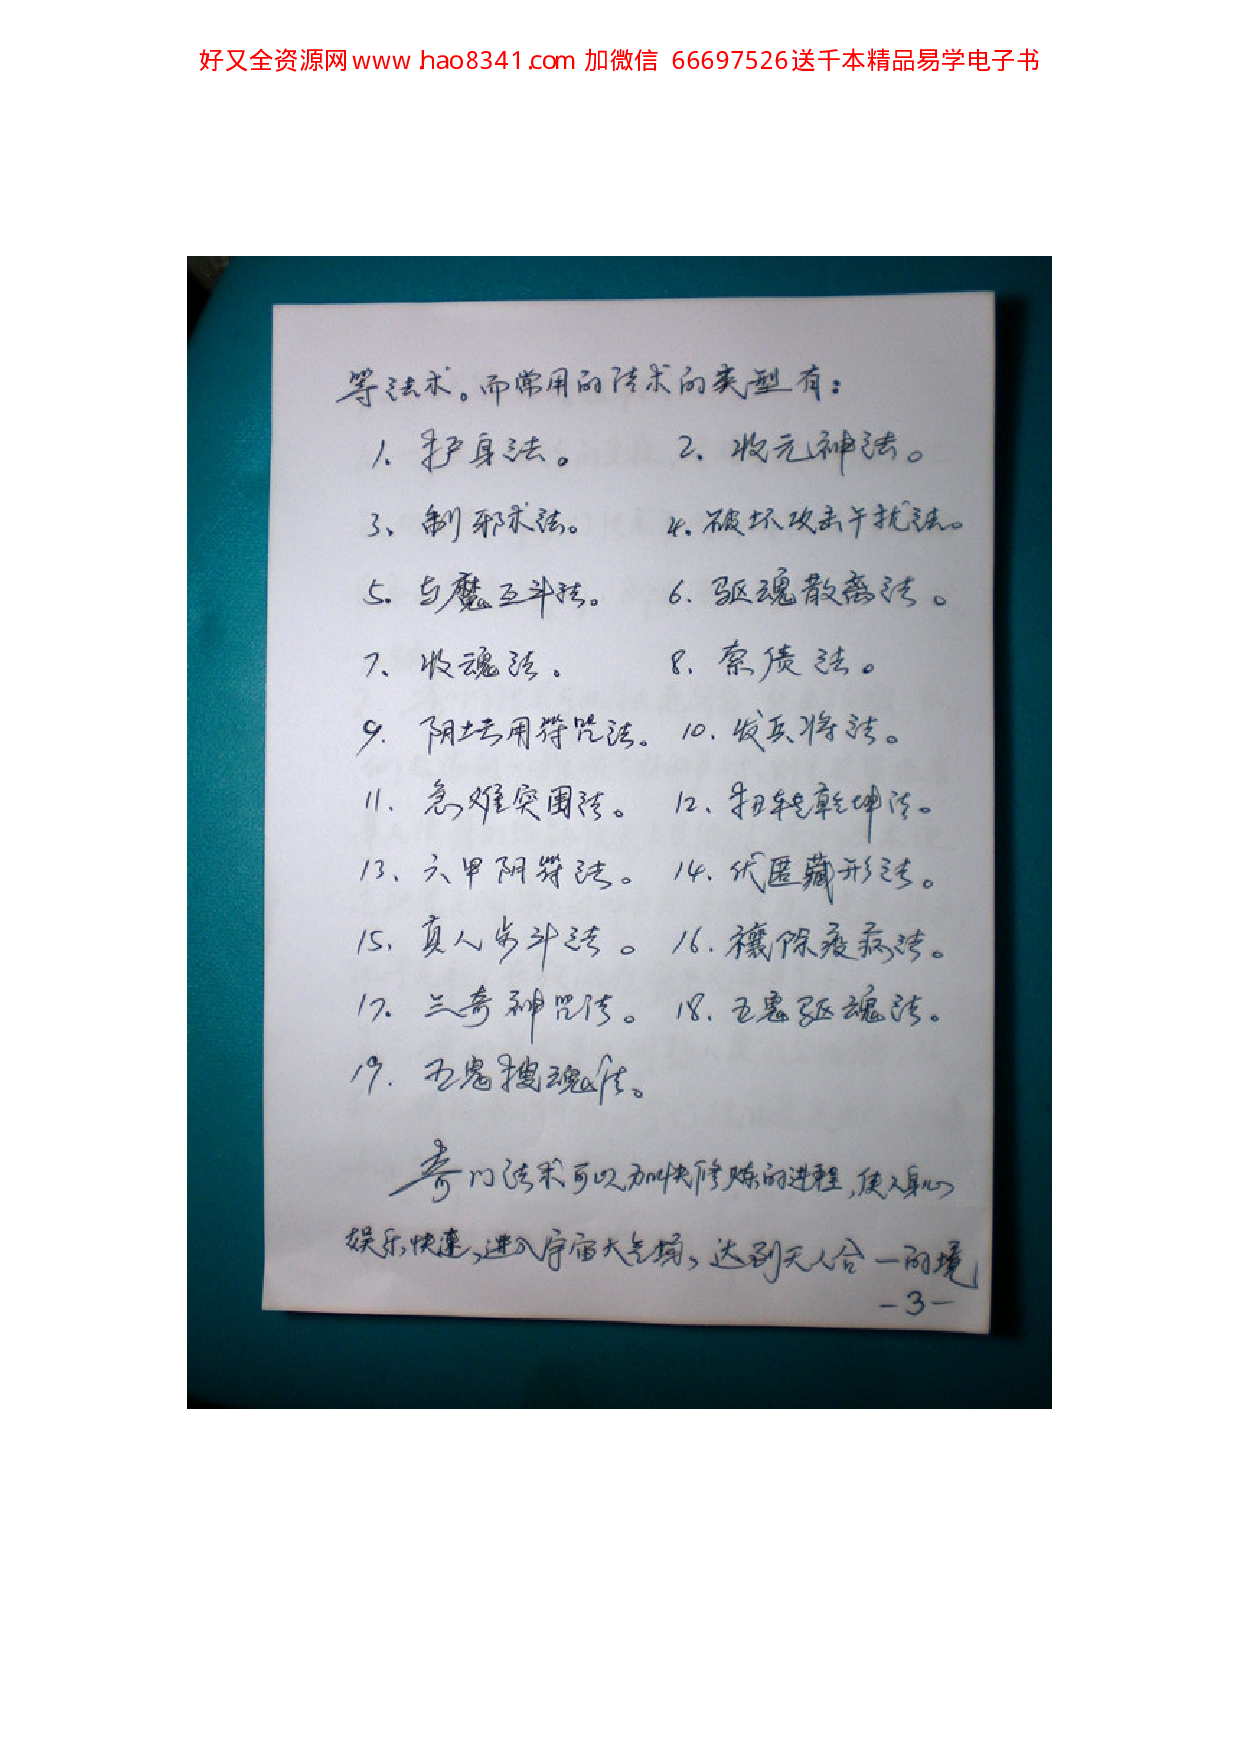 好又全资源网www.hao8341.com 加微信 66697526送千本精品易学电子书
等法术。而常用的法术的类型有：
1、护身法。 2、收元神法。
3、制邪术法。 4、破坏攻击干扰法。
5、与魔互斗法。 6、驱魂散离法。
7、收魂法。 8、索债法。
9、阴坛用符咒法。 10、发兵将法。
11、急难突围法。 12、扭转乾坤法。
13、六甲阴符法。 14、伏匿藏形法。
15、真人步斗法。 16、禳除疫病法。
17、三奇神咒法。 18、五鬼驱魂法。
19、五鬼搜魂法。
奇门法术可以加快修炼的进程，使人身心
娱乐，快速，进入宇宙大气场，达到天人合一的境
-3-